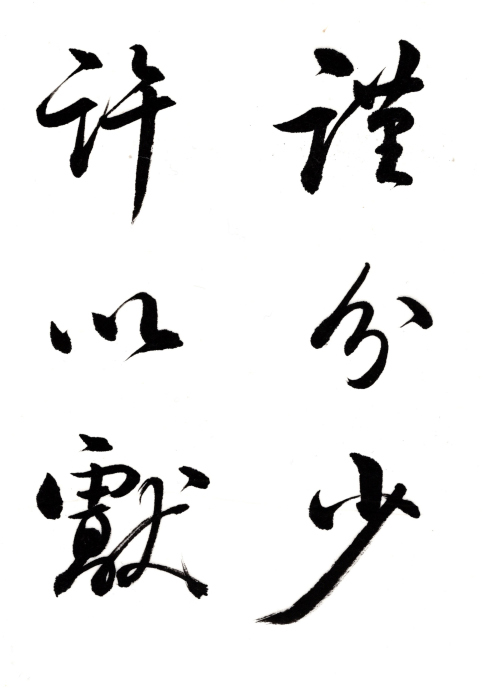 謹分少
許以獻